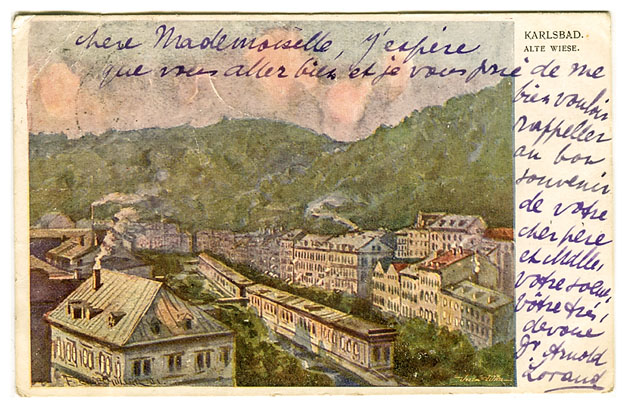 KARLSBAD.
ALTE WIESE.
chère Mademoiselle, j'espère
que vous allez bien et je vous prie de me
bien vouloir
rappeller
au bon
souvenir
de votre
cher père
et Mlle,
votre soeur,
vôtre très
devoué
Dr. Arnold
Lorand